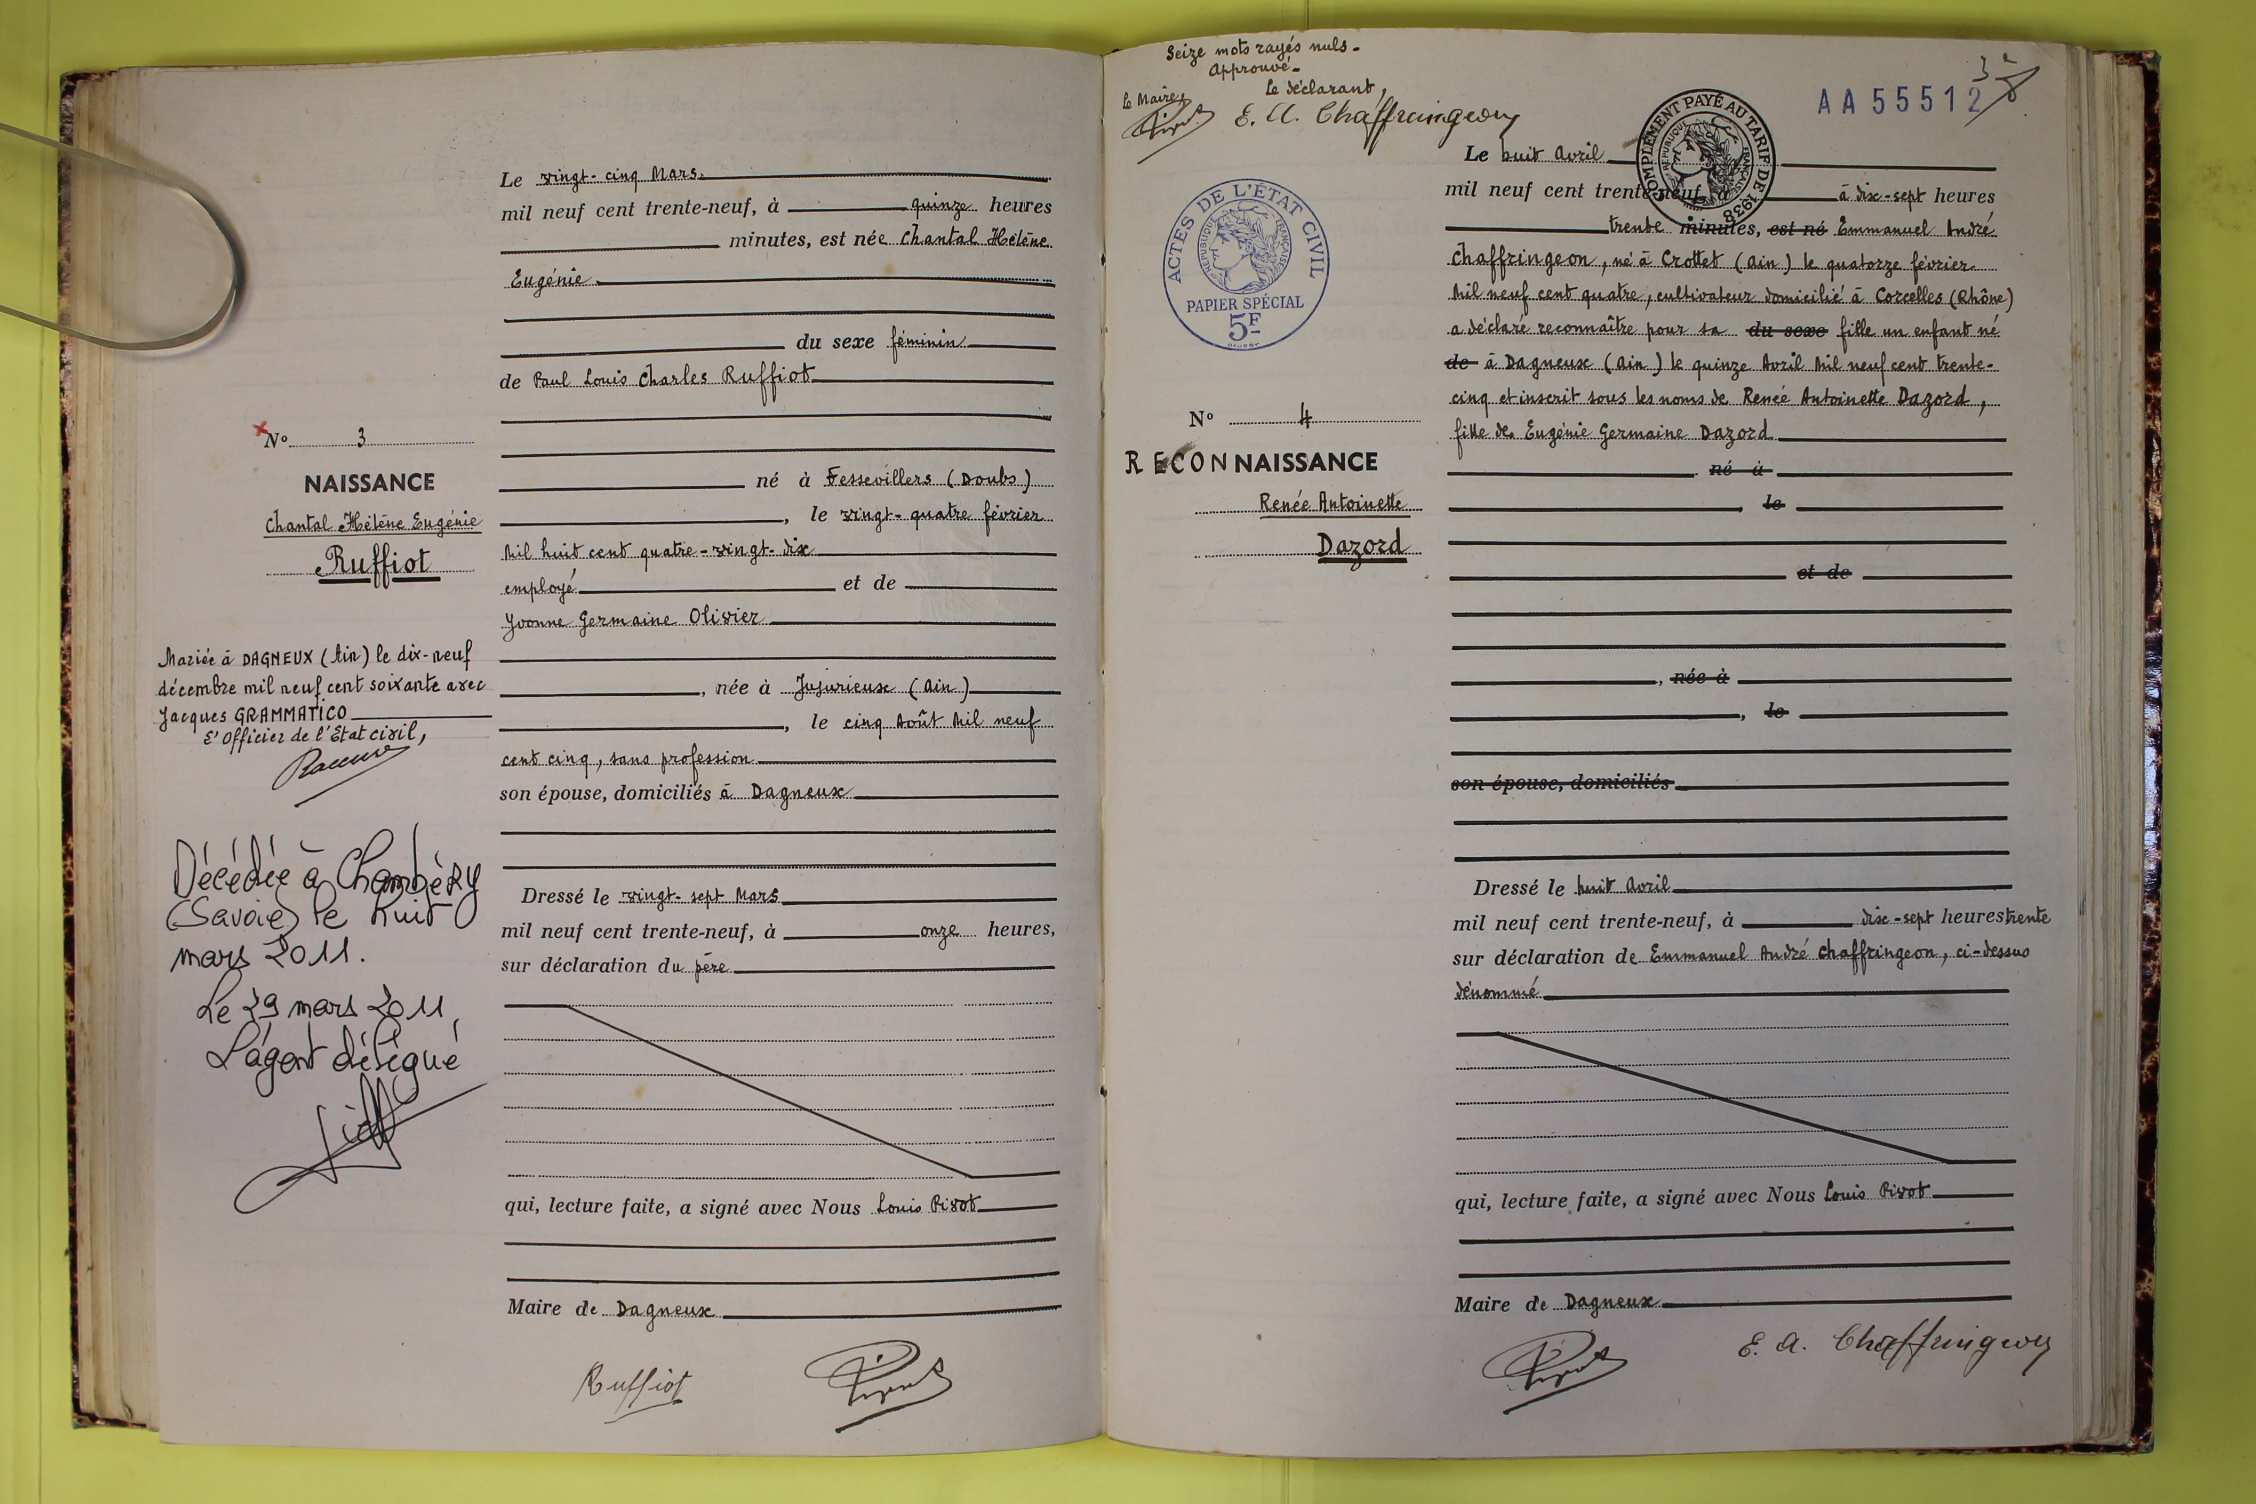 Le vingt-cinq Mars.
mil neuf cent trente-neuf, à quinze heures
minutes, est née Chantal Hélène
Eugénie
du sexe féminin
de Paul Louis Charles Ruffiot
N° 3
NAISSANCE
Chantal Hélène Eugénie
Ruffiot
né à Fessevillers (Doubs)
, le vingt-quatre février
Mil huit cent quatre-vingt-dix
employé et de
Yvonne Germaine Olivier
, née à Jujurieux (Ain)
, le cinq Août Mil neuf
cent cinq, sans profession
son épouse, domiciliés à Dagneux
Mariée à DAGNEUX (Ain) le dix-neuf
décembre mil neuf cent soixante avec
Jacques GRAMMATICO
L'Officier de l'Etat civil,
Décédée à Chambéry
(Savoie) le huit
mars 2011.
Le 29 mars 2011
L'agent délégué
Dressé le vingt-sept Mars
mil neuf cent trente-neuf, à onze heures,
sur déclaration du père
qui, lecture faite, a signé avec Nous Louis Pivot
Maire de Dagneux
Ruffiot
Pivot
Seize mots rayés nuls-
Approuvé-
Le Maire, Le déclarant,
Pivot E. A. Chaffringeon
AA55512
COMPLÉMENT PAYÉ AU TARIF DE 1938
RÉPUBLIQUE FRANÇAISE
ACTES DE L'ÉTAT CIVIL
RÉPUBLIQUE FRANÇAISE
PAPIER SPÉCIAL
5F
N° 4
RECONNAISSANCE
Renée Antoinette
Dazord
Le huit Avril
mil neuf cent trente-neuf, à à dix-sept heures
trente minutes, est né Emmanuel André
Chaffringeon, né à Crottet (Ain) le quatorze février
Mil neuf cent quatre, cultivateur domicilié à Corcelles (Rhône)
a déclaré reconnaître pour sa du sexe fille un enfant né
de à Dagneux (Ain) le quinze Avril Mil neuf cent trente-
cinq et inscrit sous les noms de Renée Antoinette Dazord,
fille de Eugénie Germaine Dazord
né à
, le
et de
, née à
, le
son épouse, domiciliés
Dressé le huit Avril
mil neuf cent trente-neuf, à dix-sept heures trente
sur déclaration de Emmanuel André Chaffringeon, ci-dessus
dénommé
qui, lecture faite, a signé avec Nous Louis Pivot
Maire de Dagneux
Pivot E. A. Chaffringeon